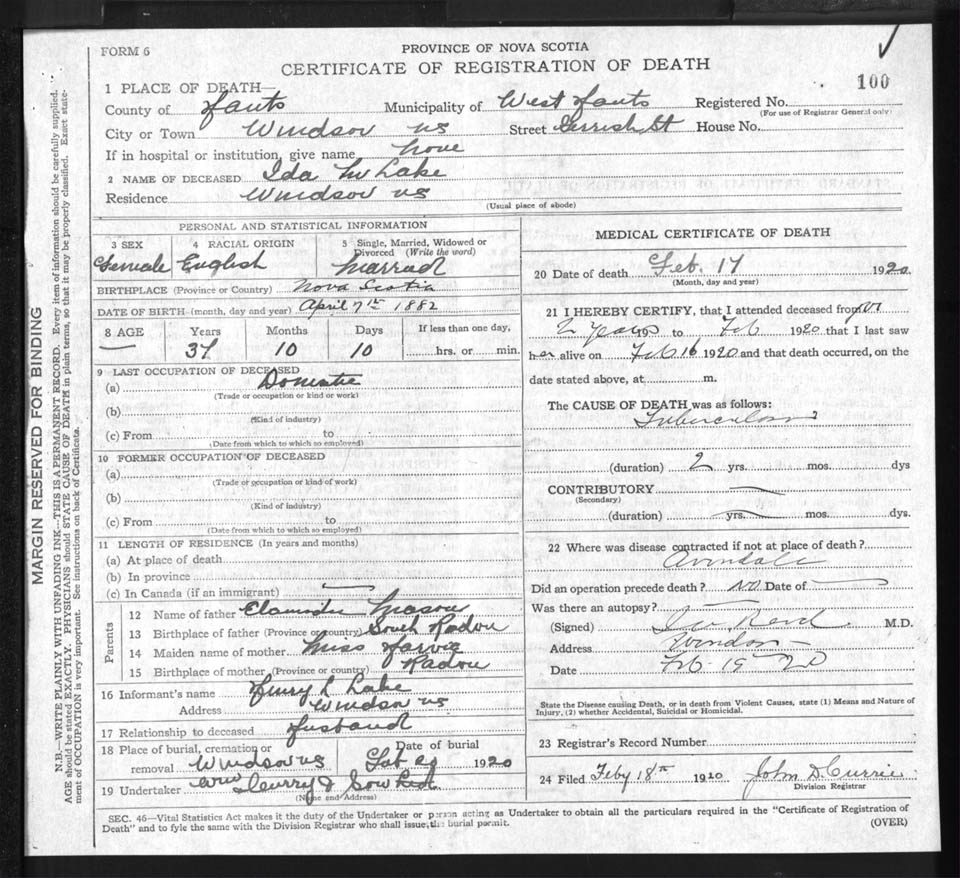 FORM 6
PROVINCE OF NOVA SCOTIA
CERTIFICATE OF REGISTRATION OF DEATH
100
1 PLACE OF DEATH—
County of Hants Municipality of West Hants Registered No.
(For use of Registrar General only)
City or Town Windsor NS Street Gerrish St House No.
If in hospital or institution, give name none
2 NAME OF DECEASED Ida M Lake
Residence Windsor NS
(Usual place of abode)
PERSONAL AND STATISTICAL INFORMATION
3 SEX 4 RACIAL ORIGIN 5 Single, Married, Widowed or Divorced (Write the word)
Female English Married
BIRTHPLACE (Province or Country) Nova Scotia
DATE OF BIRTH (month, day and year) April 7th 1882
8 AGE Years Months Days If less than one day,
37 10 10 hrs. or min.
9 LAST OCCUPATION OF DECEASED
(a) Domestic
(Trade or occupation or kind or work)
(b)
(Kind of industry)
(c) From to
(Date from which to which so employed)
10 FORMER OCCUPATION OF DECEASED
(a)
(Trade or occupation or kind of work)
(b)
(Kind of industry)
(c) From to
(Date from which to which so employed)
11 LENGTH OF RESIDENCE (In years and months)
(a) At place of death
(b) In province
(c) In Canada (if an immigrant)
Parents
12 Name of father Mason
13 Birthplace of father (Province or country) South Rawdon
14 Maiden name of mother Miss Harvie
15 Birthplace of mother (Province or country) Rawdon
16 Informant's name Henry L Lake
Address Windsor NS
17 Relationship to deceased Husband
18 Place of burial, cremation or removal Windsor NS Date of burial Feb 20 1920
19 Undertaker Wm Curry &
(Name and Address)
MEDICAL CERTIFICATE OF DEATH
20 Date of death Feb. 17 1920
(Month, day and year)
21 I HEREBY CERTIFY, that I attended deceased from
2 Years to Feb 1920 that I last saw
her alive on Feb 16 1920 and that death occurred, on the
date stated above, at m.
The CAUSE OF DEATH was as follows:
Tuberculosis
(duration) 2 yrs. mos. dys
CONTRIBUTORY
(Secondary)
(duration) yrs. mos. dys.
22 Where was disease contracted if not at place of death?
Avondale
Did an operation precede death? NO Date of
Was there an autopsy?
(Signed) Reid M.D.
Address Windsor
Date Feb-19 20
State the Disease causing Death, or in death from Violent Causes, state (1) Means and Nature of
Injury, (2) whether Accidental, Suicidal or Homicidal.
23 Registrar's Record Number
24 Filed Feby 18th 1920 John D. Currie
Division Registrar
SEC. 46—Vital Statistics Act makes it the duty of the Undertaker or person acting as Undertaker to obtain all the particulars required in the "Certificate of Registration of
Death" and to fyle the same with the Division Registrar who shall issue the burial permit.
(OVER)
MARGIN RESERVED FOR BINDING
N.B.—WRITE PLAINLY WITH UNFADING INK—THIS IS A PERMANENT RECORD. Every item of information should be carefully supplied.
AGE should be stated EXACTLY. PHYSICIANS should STATE CAUSE OF DEATH in plain terms, so that it may be properly classified. Exact state-
ment of OCCUPATION is very important. See instructions on back of Certificate.